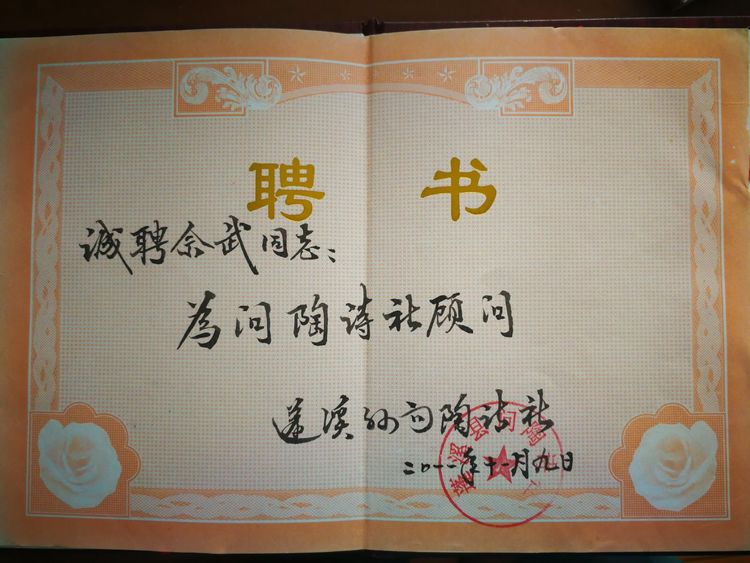 聘书
诚聘余武同志：
為问陶诗社顾问
蓬溪县问陶诗社
二〇一一年十一月九日